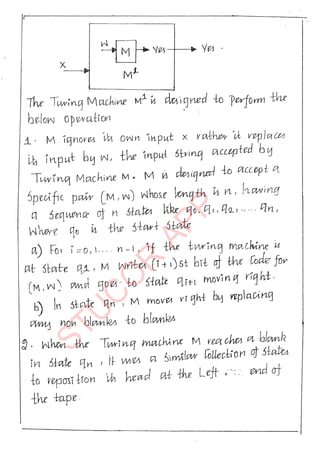 W
M
Yes
Yes.
X
M¹
The Turing Machine M¹ is designed to perform the
below operation
1. M ignores its own input x rather it replaces
its input by W, the input string accepted by
Turing Machine M. M is designed to accept a
specific pair (M, W) whose length is n, having
a sequence of n states like q0, q1, q2, ..... qn,
Where q0 is the start state
a) For i=0,1,... n-1, if the turing machine is
at state q1, M writes (i+1)st bit of the Code for
(M, W) and goes to state qi+1 moving right.
b) In state qn, M moves right by replacing
any non blanks to blanks
2. When the Turing machine M reaches a blank
in state qn, it uses a similar Collection of states
to reposition its head at the Left end of
the tape.
STUCOR APP